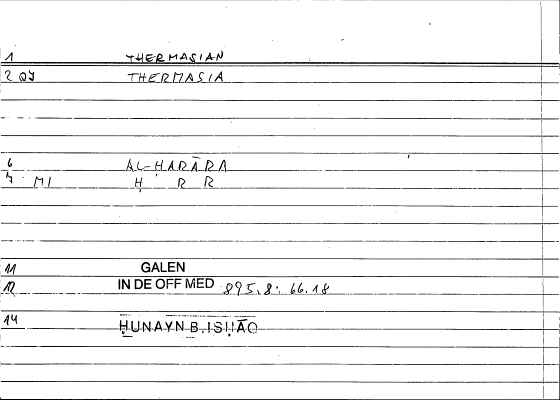 1 THERMASIAN
2 QJ THERMASIA
6 AL-ḤARĀRA
7 MI Ḥ R R
11 GALEN
12 IN DE OFF MED 895.8: 66.18
14 ḤUNAYN B. ISḤĀQ